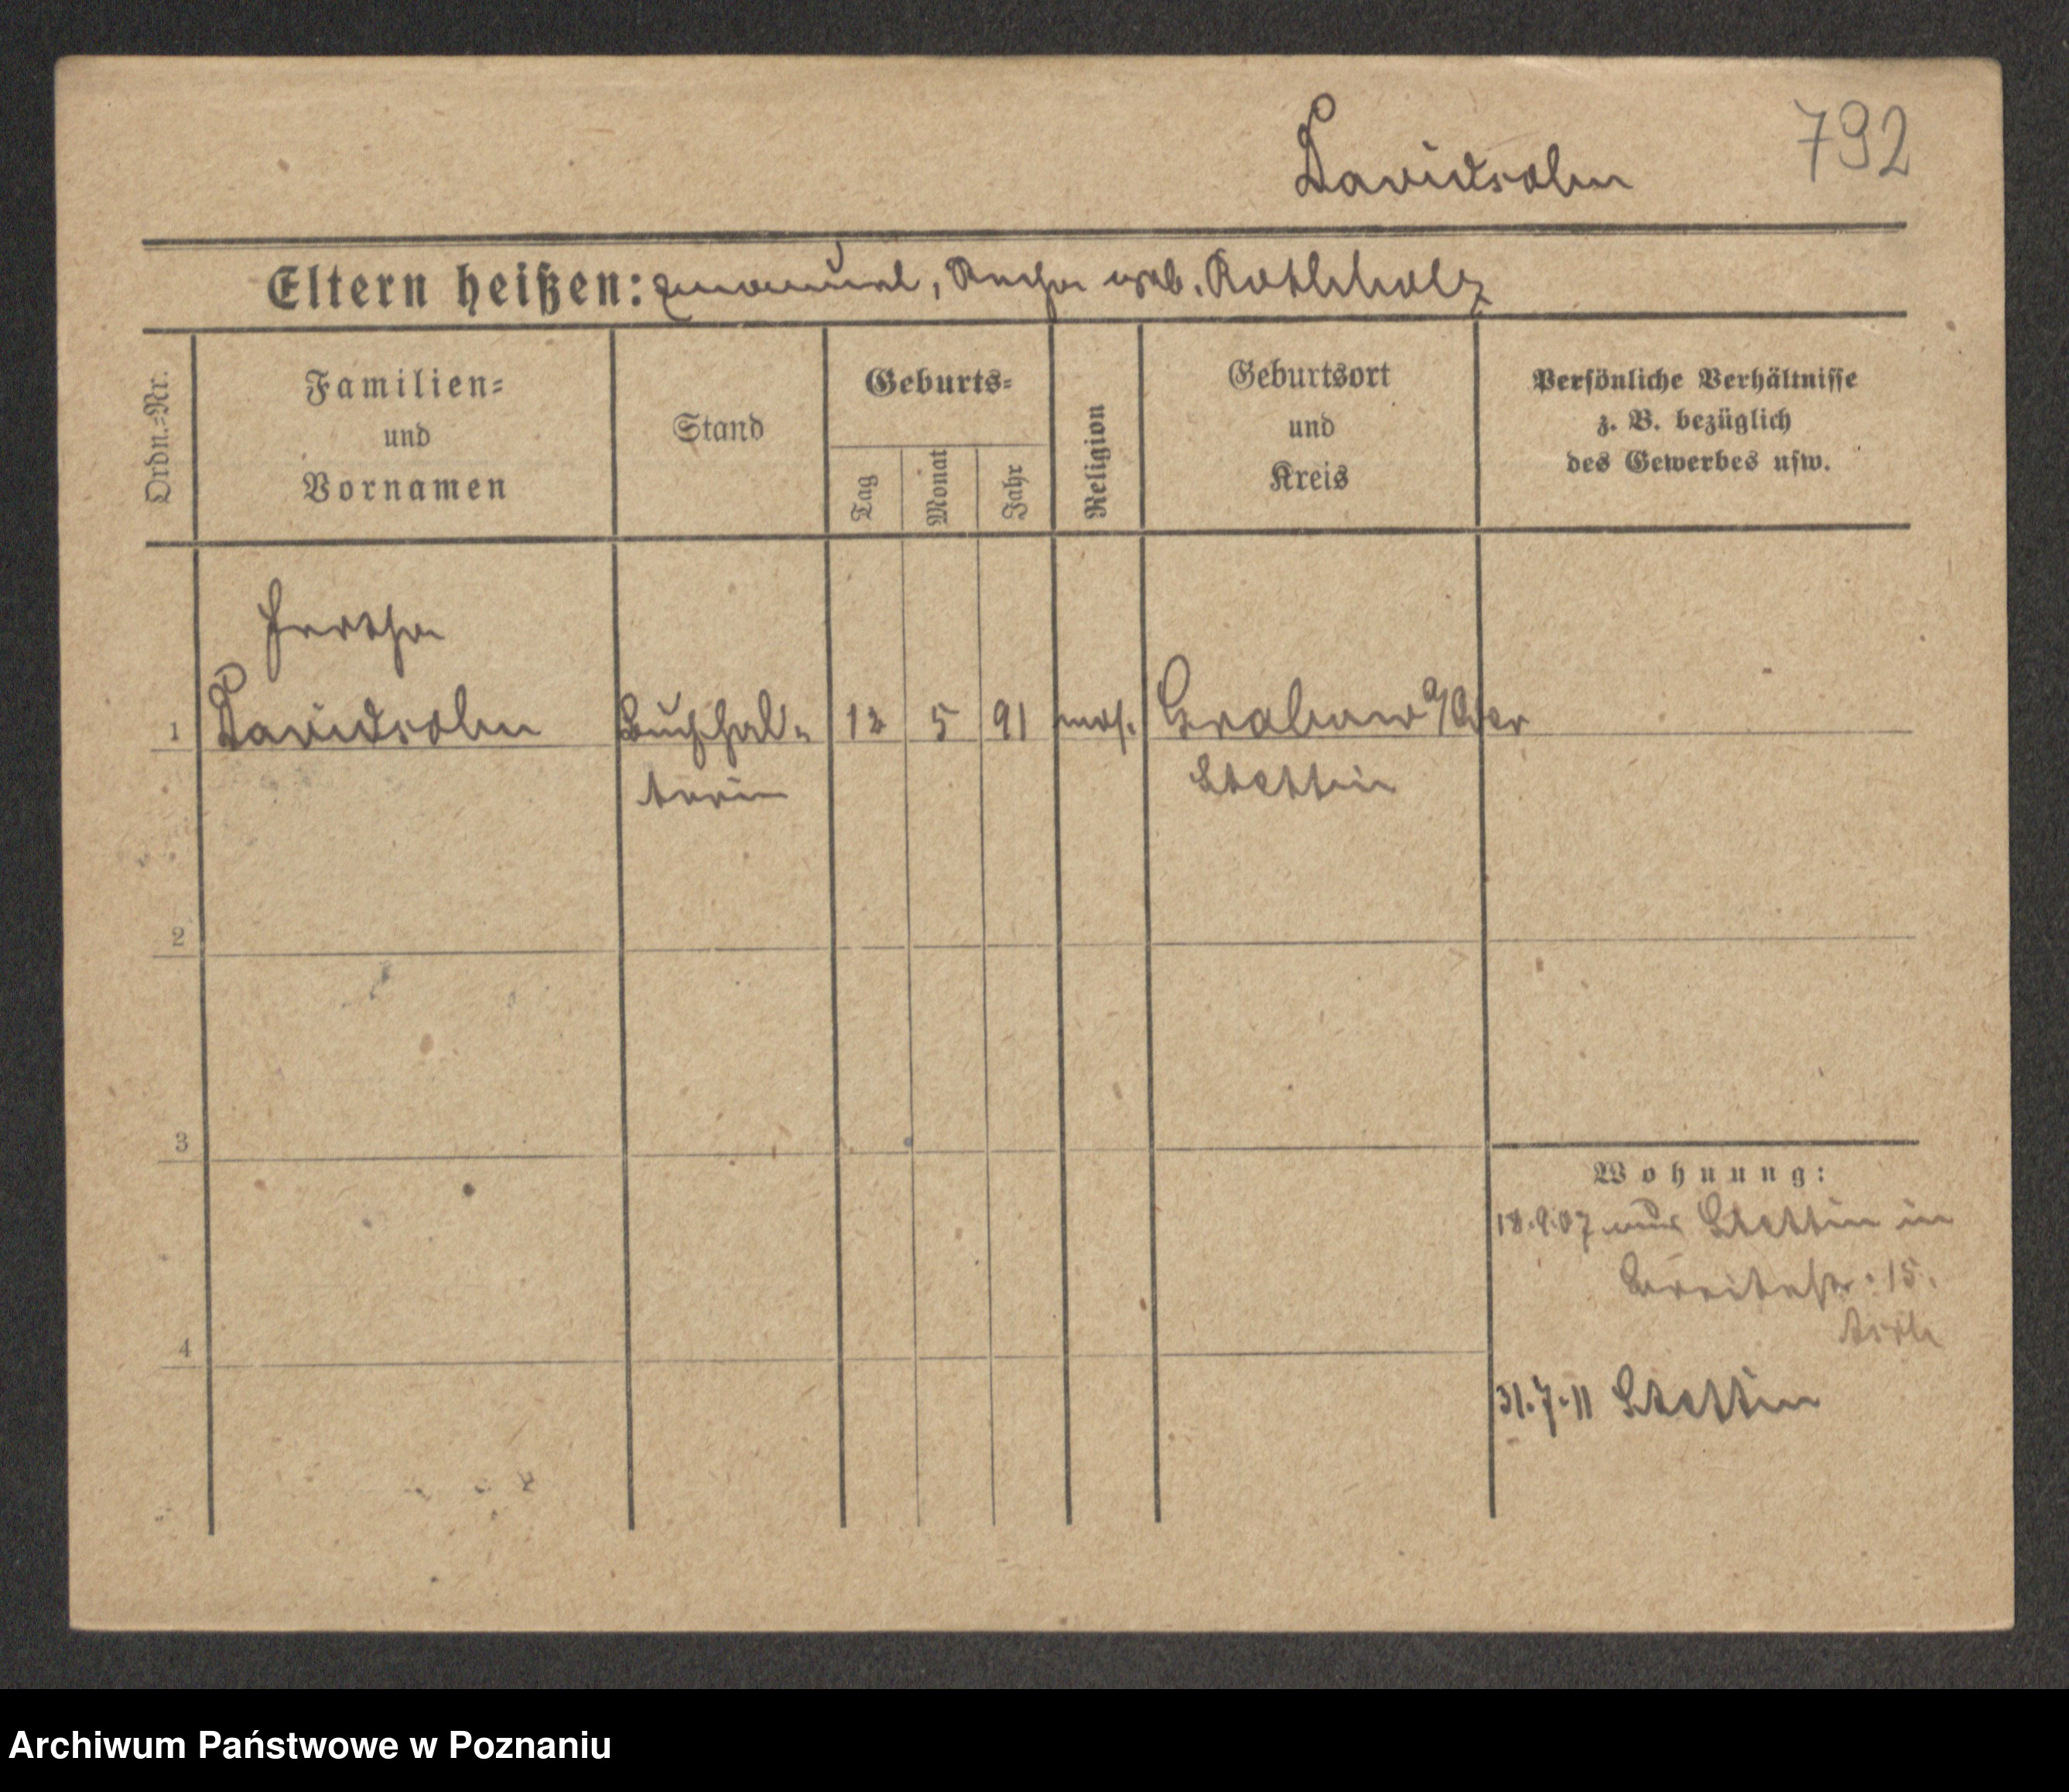 Davidsohn
792
Eltern heißen: Emanuel, Recha geb. Rothholz
Ordn.-Nr.
Familien-
und
Vornamen
Stand
Geburts-
Tag
Monat
Jahr
Religion
Geburtsort
und
Kreis
Persönliche Verhältnisse
z. B. bezüglich
des Gewerbes usw.
Hertha
1 Davidsohn Buchhal- 12 5 91 mos. Grabow a/Oder
terin Stettin
2
3
4
Wohnung:
18.9.07 aus Stettin in
Breitestr. 15.
31.7.11 Stettin
Archiwum Państwowe w Poznaniu